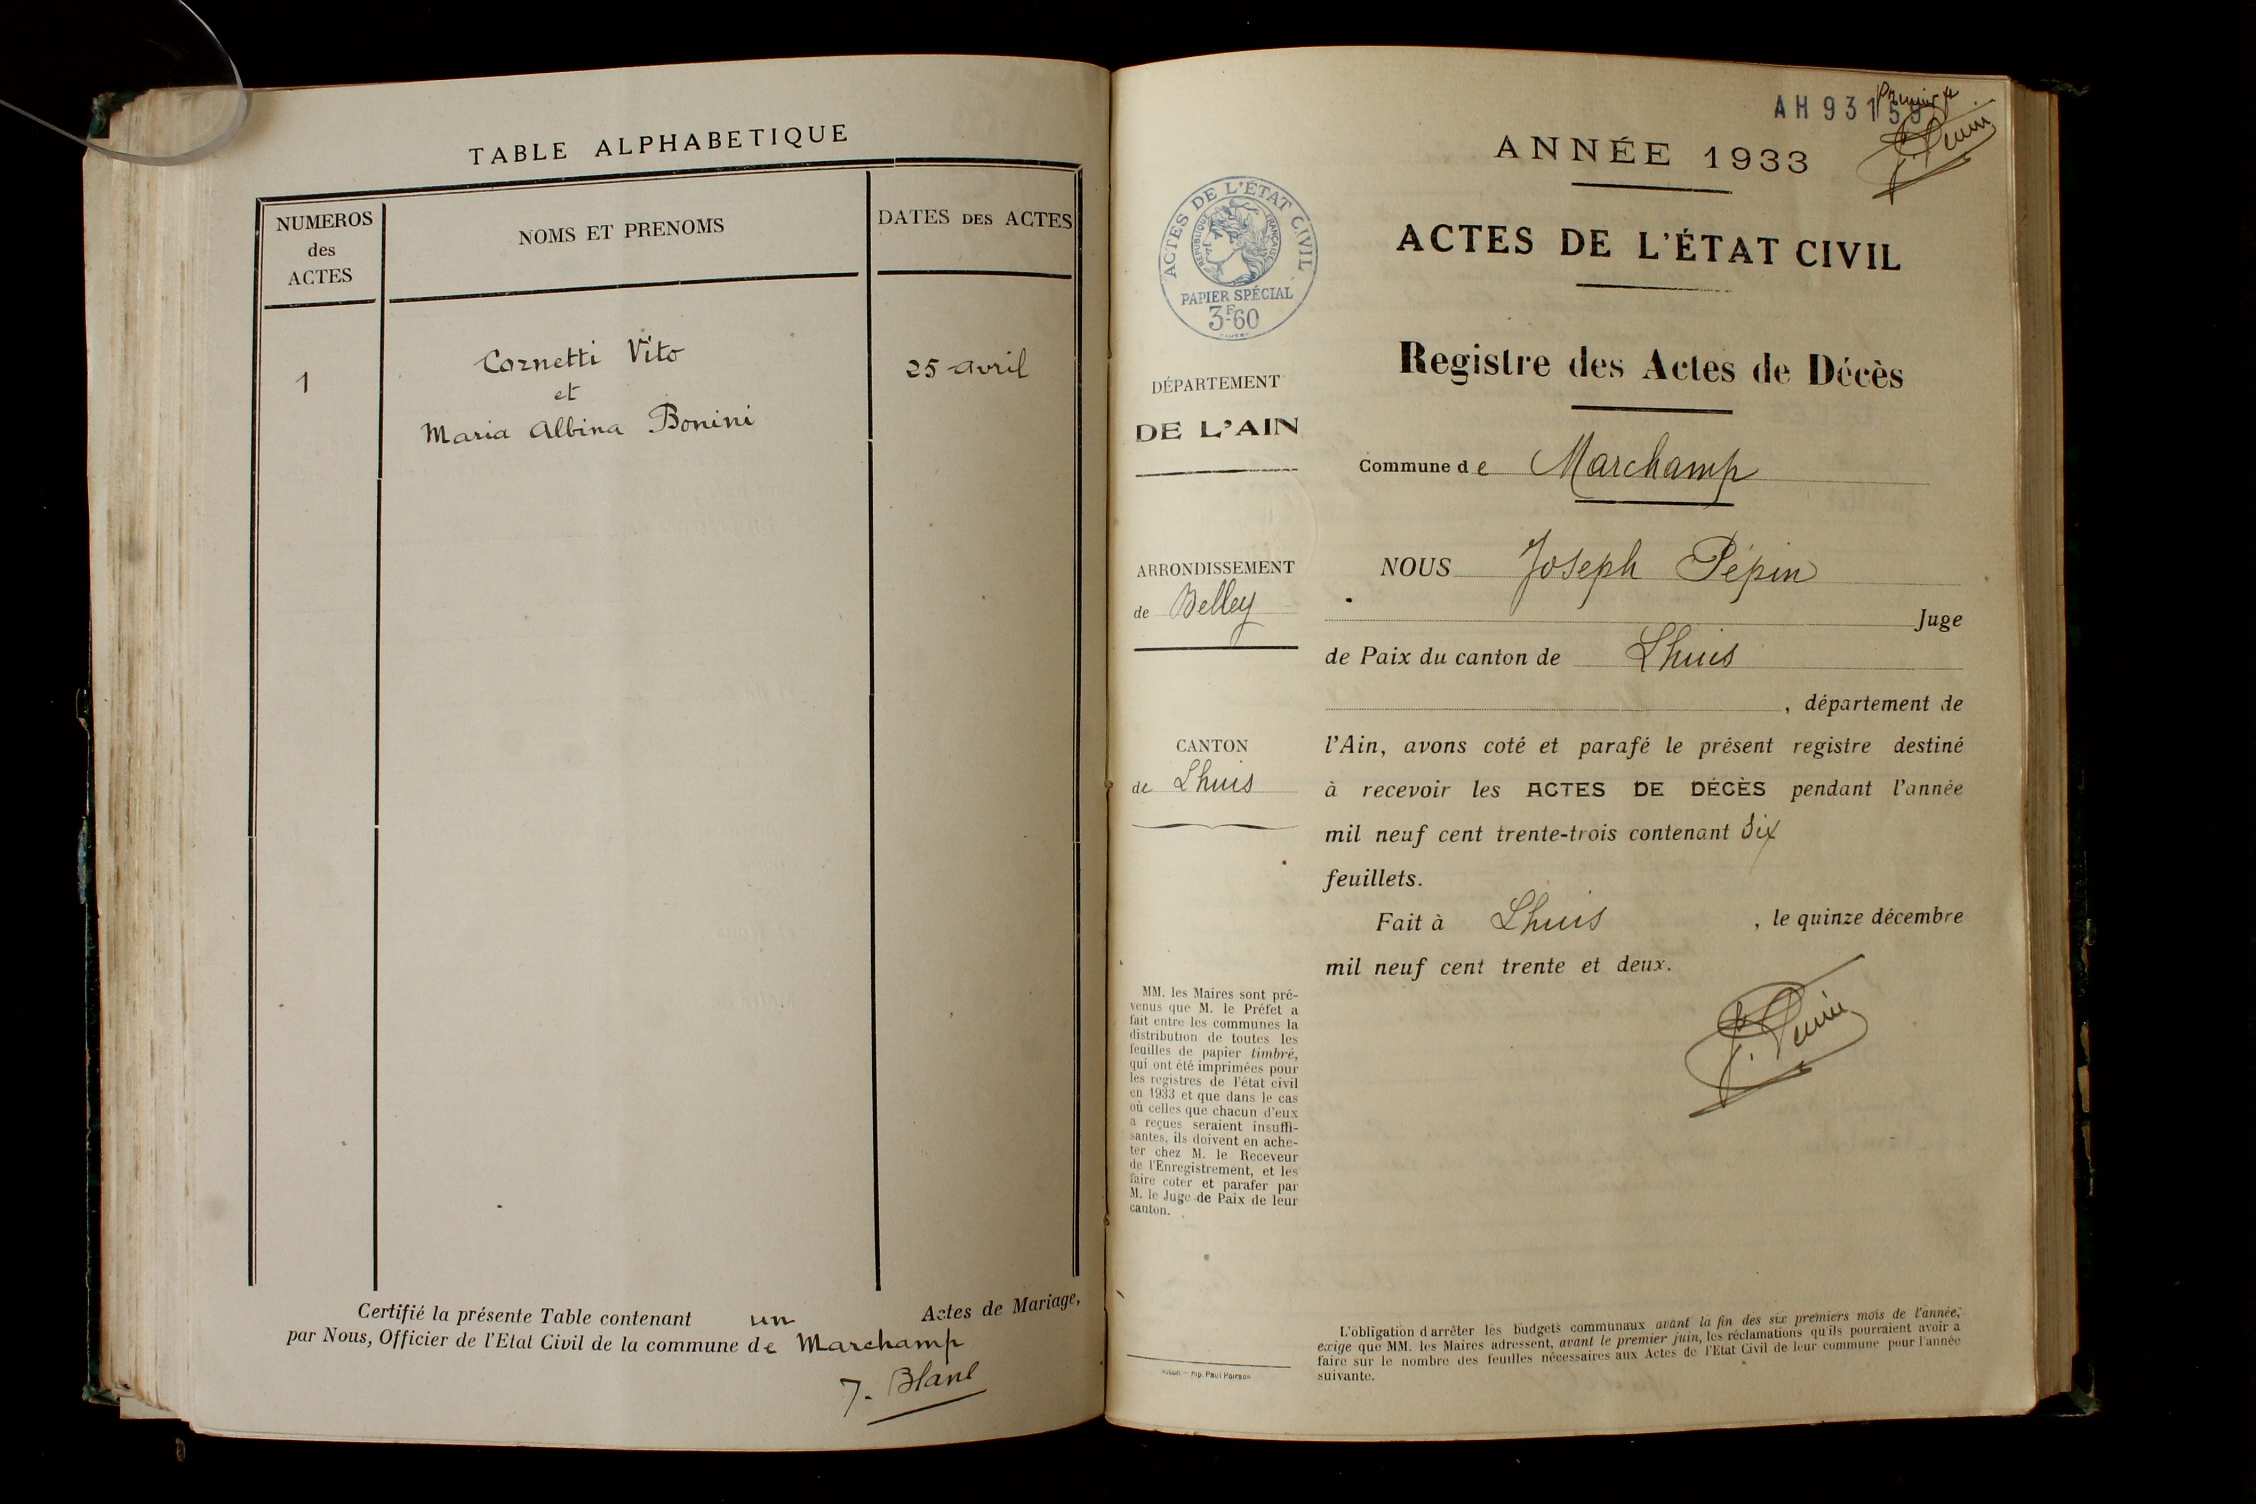 TABLE ALPHABETIQUE
NUMEROS
des
ACTES
NOMS ET PRENOMS
DATES DES ACTES
1
Cornetti Vito
et
Maria Albina Bonini
25 avril
Certifié la présente Table contenant un Actes de Mariage,
par Nous, Officier de l'Etat Civil de la commune de Marchamp
J. Blanc
AH 93159
Premier f
J. Pépin
ANNÉE 1933
ACTES DE L'ÉTAT CIVIL
RÉPUBLIQUE FRANÇAISE
PAPIER SPÉCIAL
3F60
ACTES DE L'ÉTAT CIVIL
Registre des Actes de Décès
DÉPARTEMENT
DE L'AIN
ARRONDISSEMENT
de Belley
CANTON
de Lhuis
MM. les Maires sont pré-
venus que M. le Préfet a
fait entre les communes la
distribution de toutes les
feuilles de papier timbré,
qui ont été imprimées pour
les registres de l'état civil
en 1933 et que dans le cas
où celles que chacun d'eux
a reçues seraient insuffi-
santes, ils doivent en ache-
ter chez M. le Receveur
de l'Enregistrement, et les
faire coter et parafer par
M. le Juge de Paix de leur
canton.
Imp. Paul Poirson
Commune de Marchamp
NOUS Joseph Pépin
Juge
de Paix du canton de Lhuis
, département de
l'Ain, avons coté et parafé le présent registre destiné
à recevoir les ACTES DE DÉCÈS pendant l'année
mil neuf cent trente-trois contenant six
feuillets.
Fait à Lhuis , le quinze décembre
mil neuf cent trente et deux.
J. Pépin
L'obligation d'arrêter les budgets communaux avant la fin des six premiers mois de l'année,
exige que MM. les Maires adressent, avant le premier juin, les réclamations qu'ils pourraient avoir à
faire sur le nombre des feuilles nécessaires aux Actes de l'Etat Civil de leur commune pour l'année
suivante.